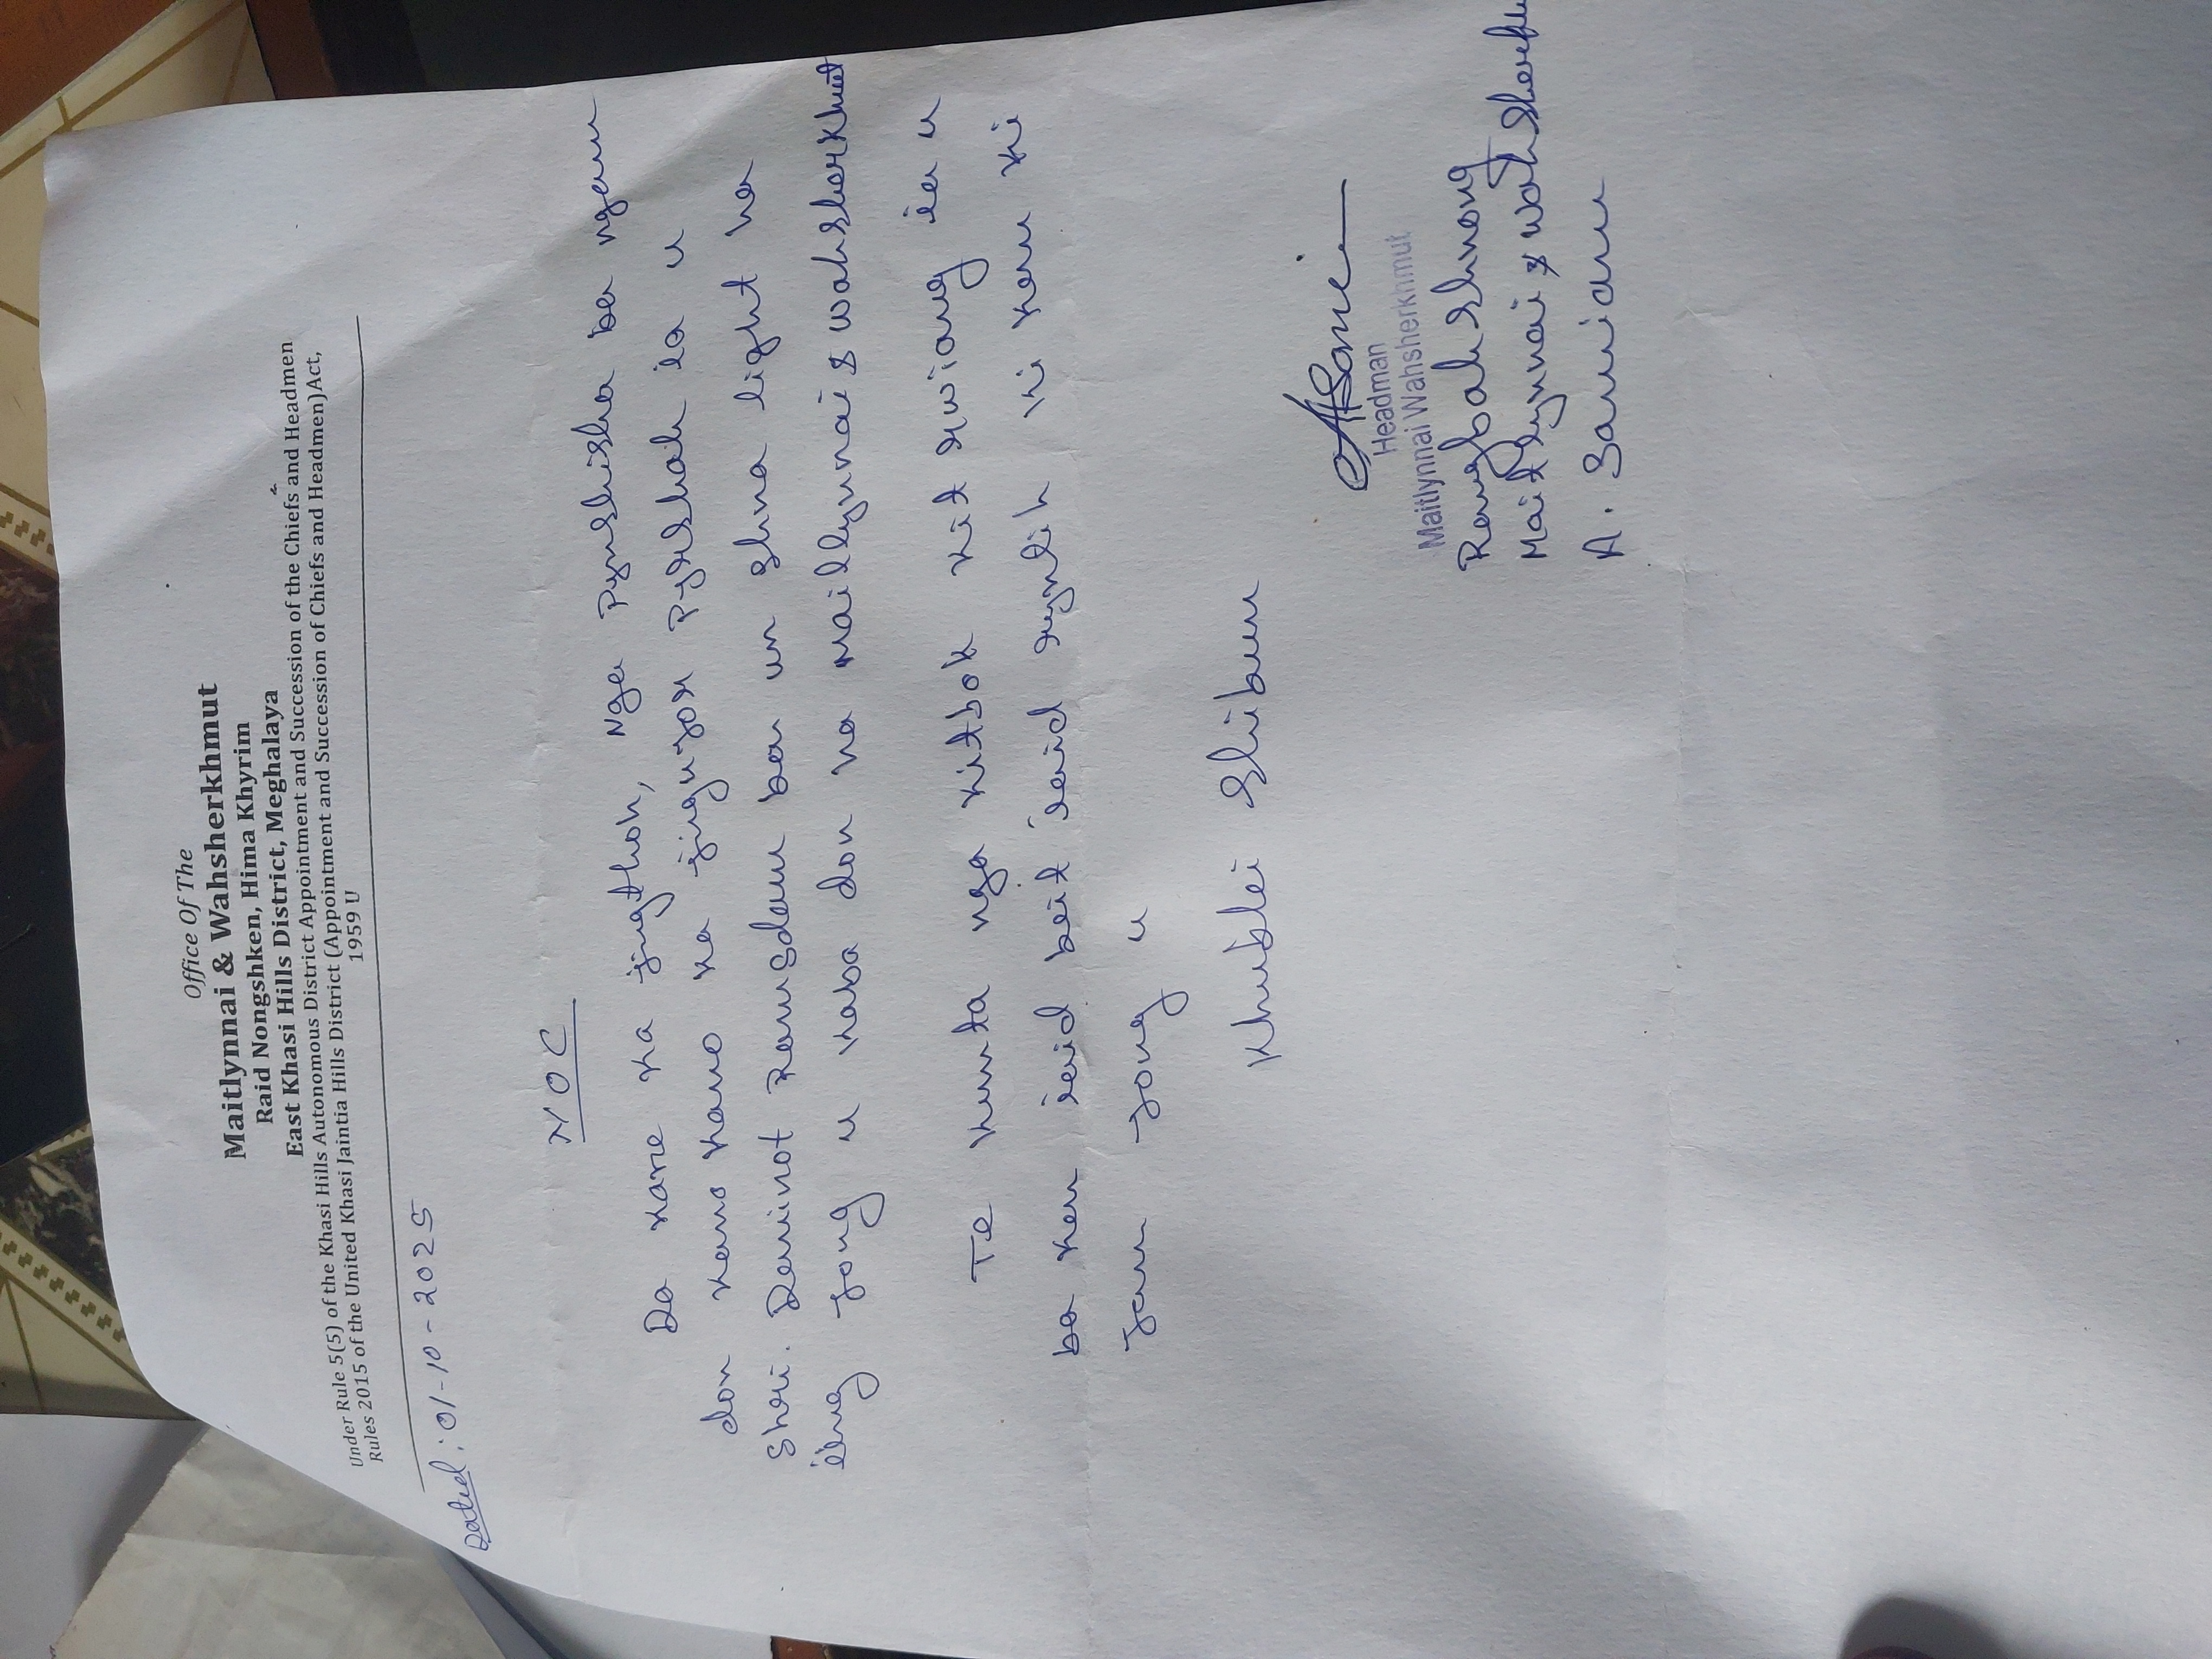 Office Of The
Maitlynnai & Wahsherkhmut
Raid Nongshken, Hima Khyrim
East Khasi Hills District, Meghalaya
Under Rule 5(5) of the Khasi Hills Autonomous District Appointment and Succession of the Chiefs and Headmen
Rules 2015 of the United Khasi Jaintia Hills District (Appointment and Succession of Chiefs and Headmen)Act,
1959 U
Dated : 01-10-2025
NOC
Da kane ka jingthoh, Nga Pynshisha ba ngam
don kano kano ka jingujor Pyrshah ïa u
Shri. Deminot Ramsdam ban un shna light ha
ïing jong u kaba don ha maitlynnai & wahsherkhmut
Te kumta nga kitbok kit rwiang ïa u
ba ken ïaid beit ïaid ryntih ki kam ki
jam jong u
Khublei Shibun
Headman
Maitlynnai Wahsherkhmut
Rangbah Shnong
Maitlynnai & Wahsherkhmut
A. Saniam